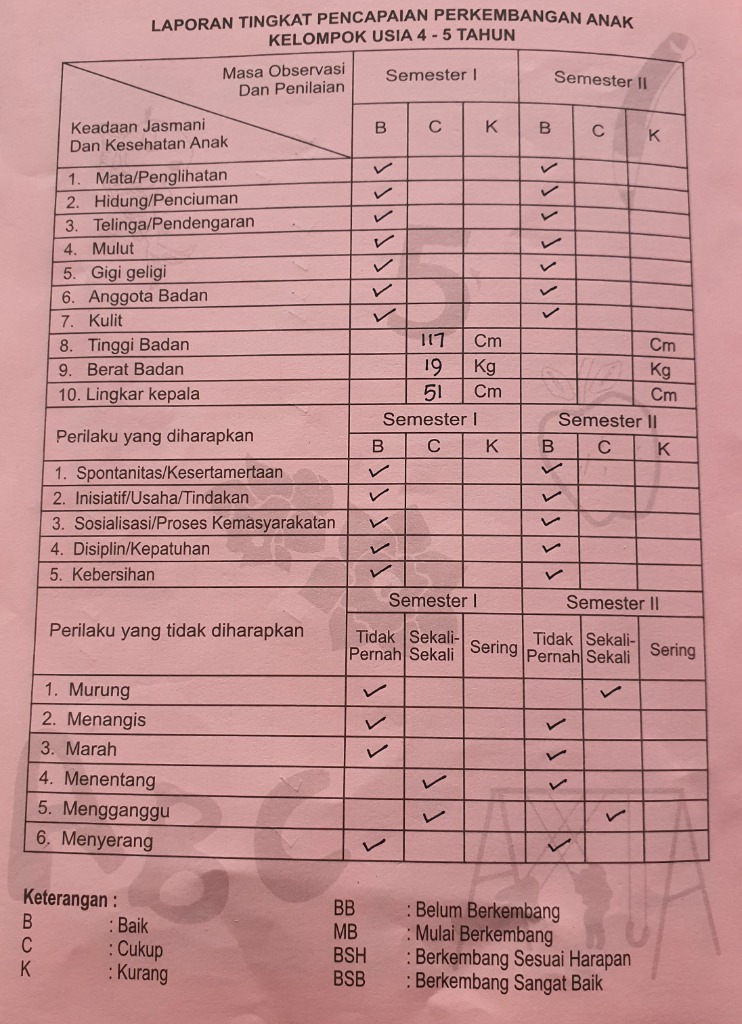 LAPORAN TINGKAT PENCAPAIAN PERKEMBANGAN ANAK
KELOMPOK USIA 4 - 5 TAHUN
Masa Observasi
Dan Penilaian
Keadaan Jasmani
Dan Kesehatan Anak
Semester I
Semester II
B C K B C K
1. Mata/Penglihatan ✓ ✓
2. Hidung/Penciuman ✓ ✓
3. Telinga/Pendengaran ✓ ✓
4. Mulut ✓ ✓
5. Gigi geligi ✓ ✓
6. Anggota Badan ✓ ✓
7. Kulit ✓ ✓
8. Tinggi Badan 117 Cm Cm
9. Berat Badan 19 Kg Kg
10. Lingkar kepala 51 Cm Cm
Perilaku yang diharapkan
Semester I Semester II
B C K B C K
1. Spontanitas/Kesertamertaan ✓ ✓
2. Inisiatif/Usaha/Tindakan ✓ ✓
3. Sosialisasi/Proses Kemasyarakatan ✓ ✓
4. Disiplin/Kepatuhan ✓ ✓
5. Kebersihan ✓ ✓
Perilaku yang tidak diharapkan
Semester I Semester II
Tidak Pernah Sekali-Sekali Sering Tidak Pernah Sekali-Sekali Sering
1. Murung ✓ ✓
2. Menangis ✓ ✓
3. Marah ✓ ✓
4. Menentang ✓ ✓
5. Mengganggu ✓ ✓
6. Menyerang ✓ ✓
Keterangan :
B : Baik
C : Cukup
K : Kurang
BB : Belum Berkembang
MB : Mulai Berkembang
BSH : Berkembang Sesuai Harapan
BSB : Berkembang Sangat Baik
5
ABC